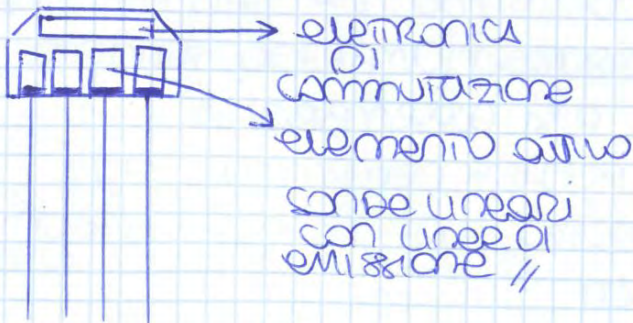 elettronica
di
commutazione
elemento attivo
sonde lineari
con linee di
emissione //